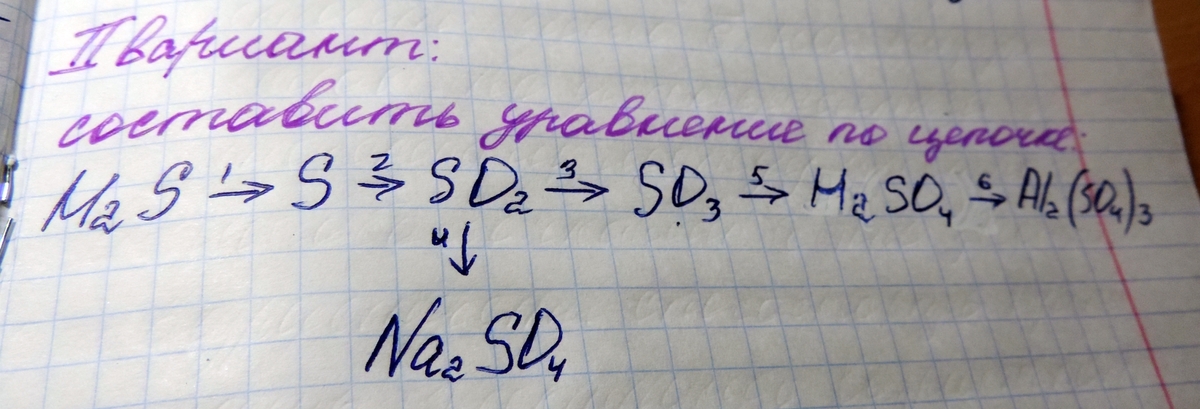 II вариант:
составить уравнение по цепочке:
H₂S 1→ S 2→ SO₂ 3→ SO₃ 5→ H₂SO₄ 6→ Al₂(SO₄)₃
4↓
Na₂SO₄